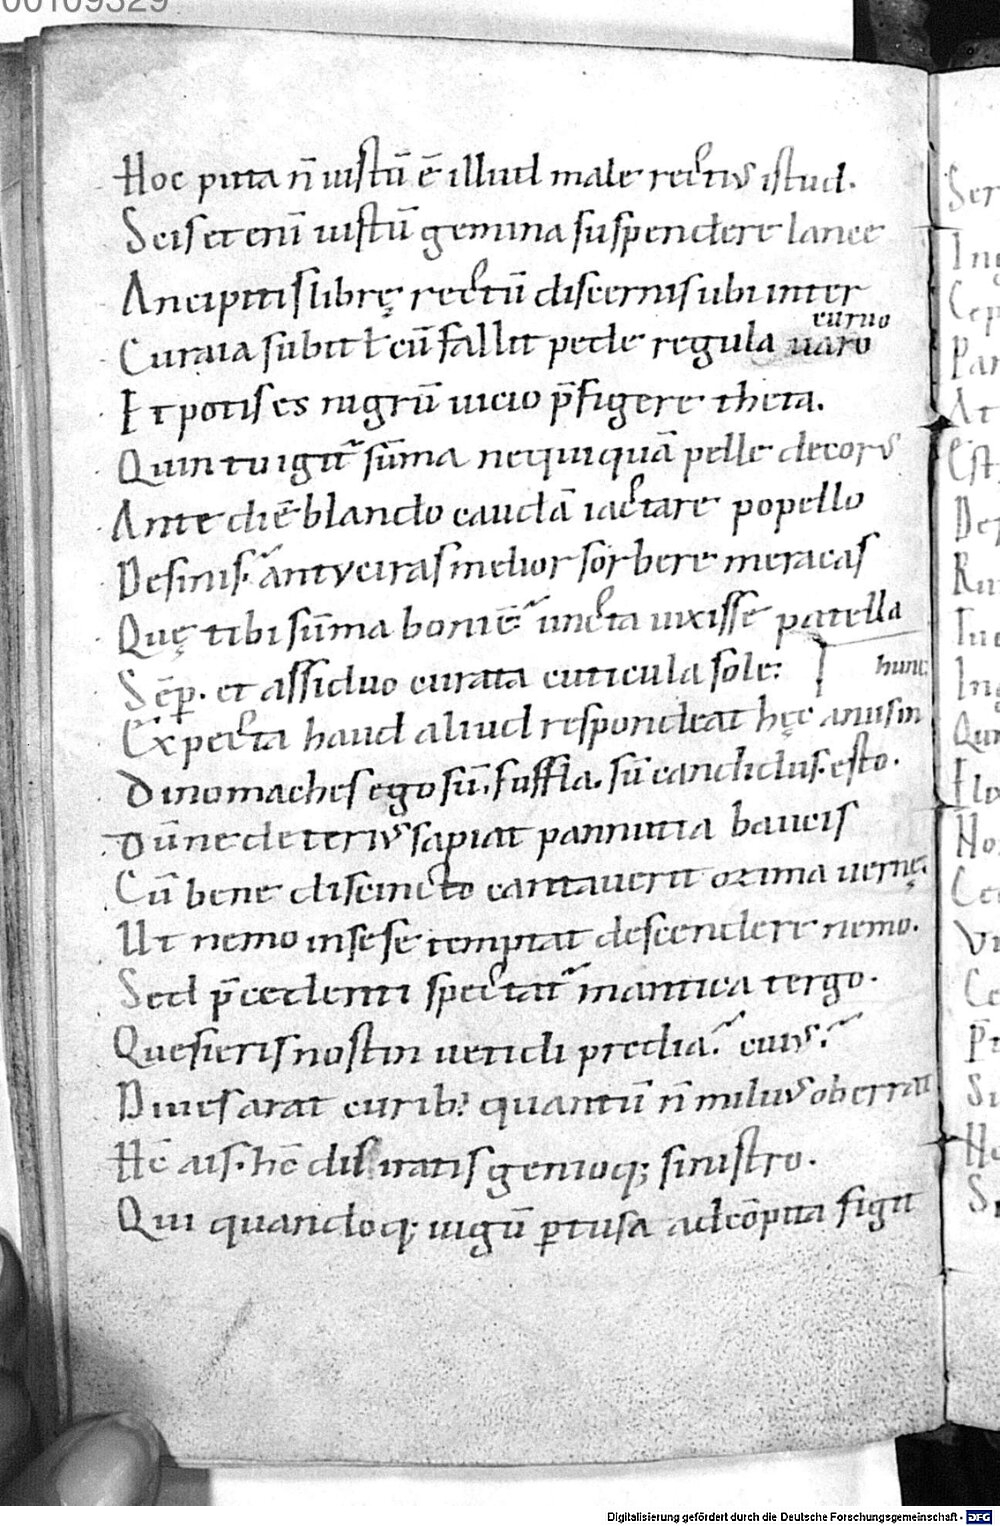 00109329
Hoc puta n̄ iustū ē illud male rectius istud.
Scis etenī iustū gemina suspendere lance
Ancipitis librę rectū discernis ubi inter
curuo
Curua subit ł cū fallit pede regula uaro
Et potis es nigrū uicio p̄figere theta.
Quin tu igit᷑ sūma nequiquā pelle decorus
Ante diē blando caudā iactare popello
Desinis. anticyras melior sorbere meracas
Quę tibi sūma boni ē uncta uixisse patella
Sēp. et assiduo curata cuticula sole:
hunc
Expecta haud aliud respondeat hęc anus in
Dinomaches ego sū. suffla. sū candidus. esto.
Dū ne deterius sapiat pannuTia baucis
Cū bene discincto cantauerit ozima uernę.
Ut nemo in sese temptat descendere nemo.
Sed p̄cedenti spectat᷑ mantica tergo.
Quesieris nostin uetidi predia. cuius.
Diues arat curib; quantū n̄ miluus oberrat
Hc̄ ais. hc̄ dis iratis genioq; sinistro.
Qui quandoq; iugū ꝑtusa ad cōpita figit
Digitalisierung gefördert durch die Deutsche Forschungsgemeinschaft - DFG